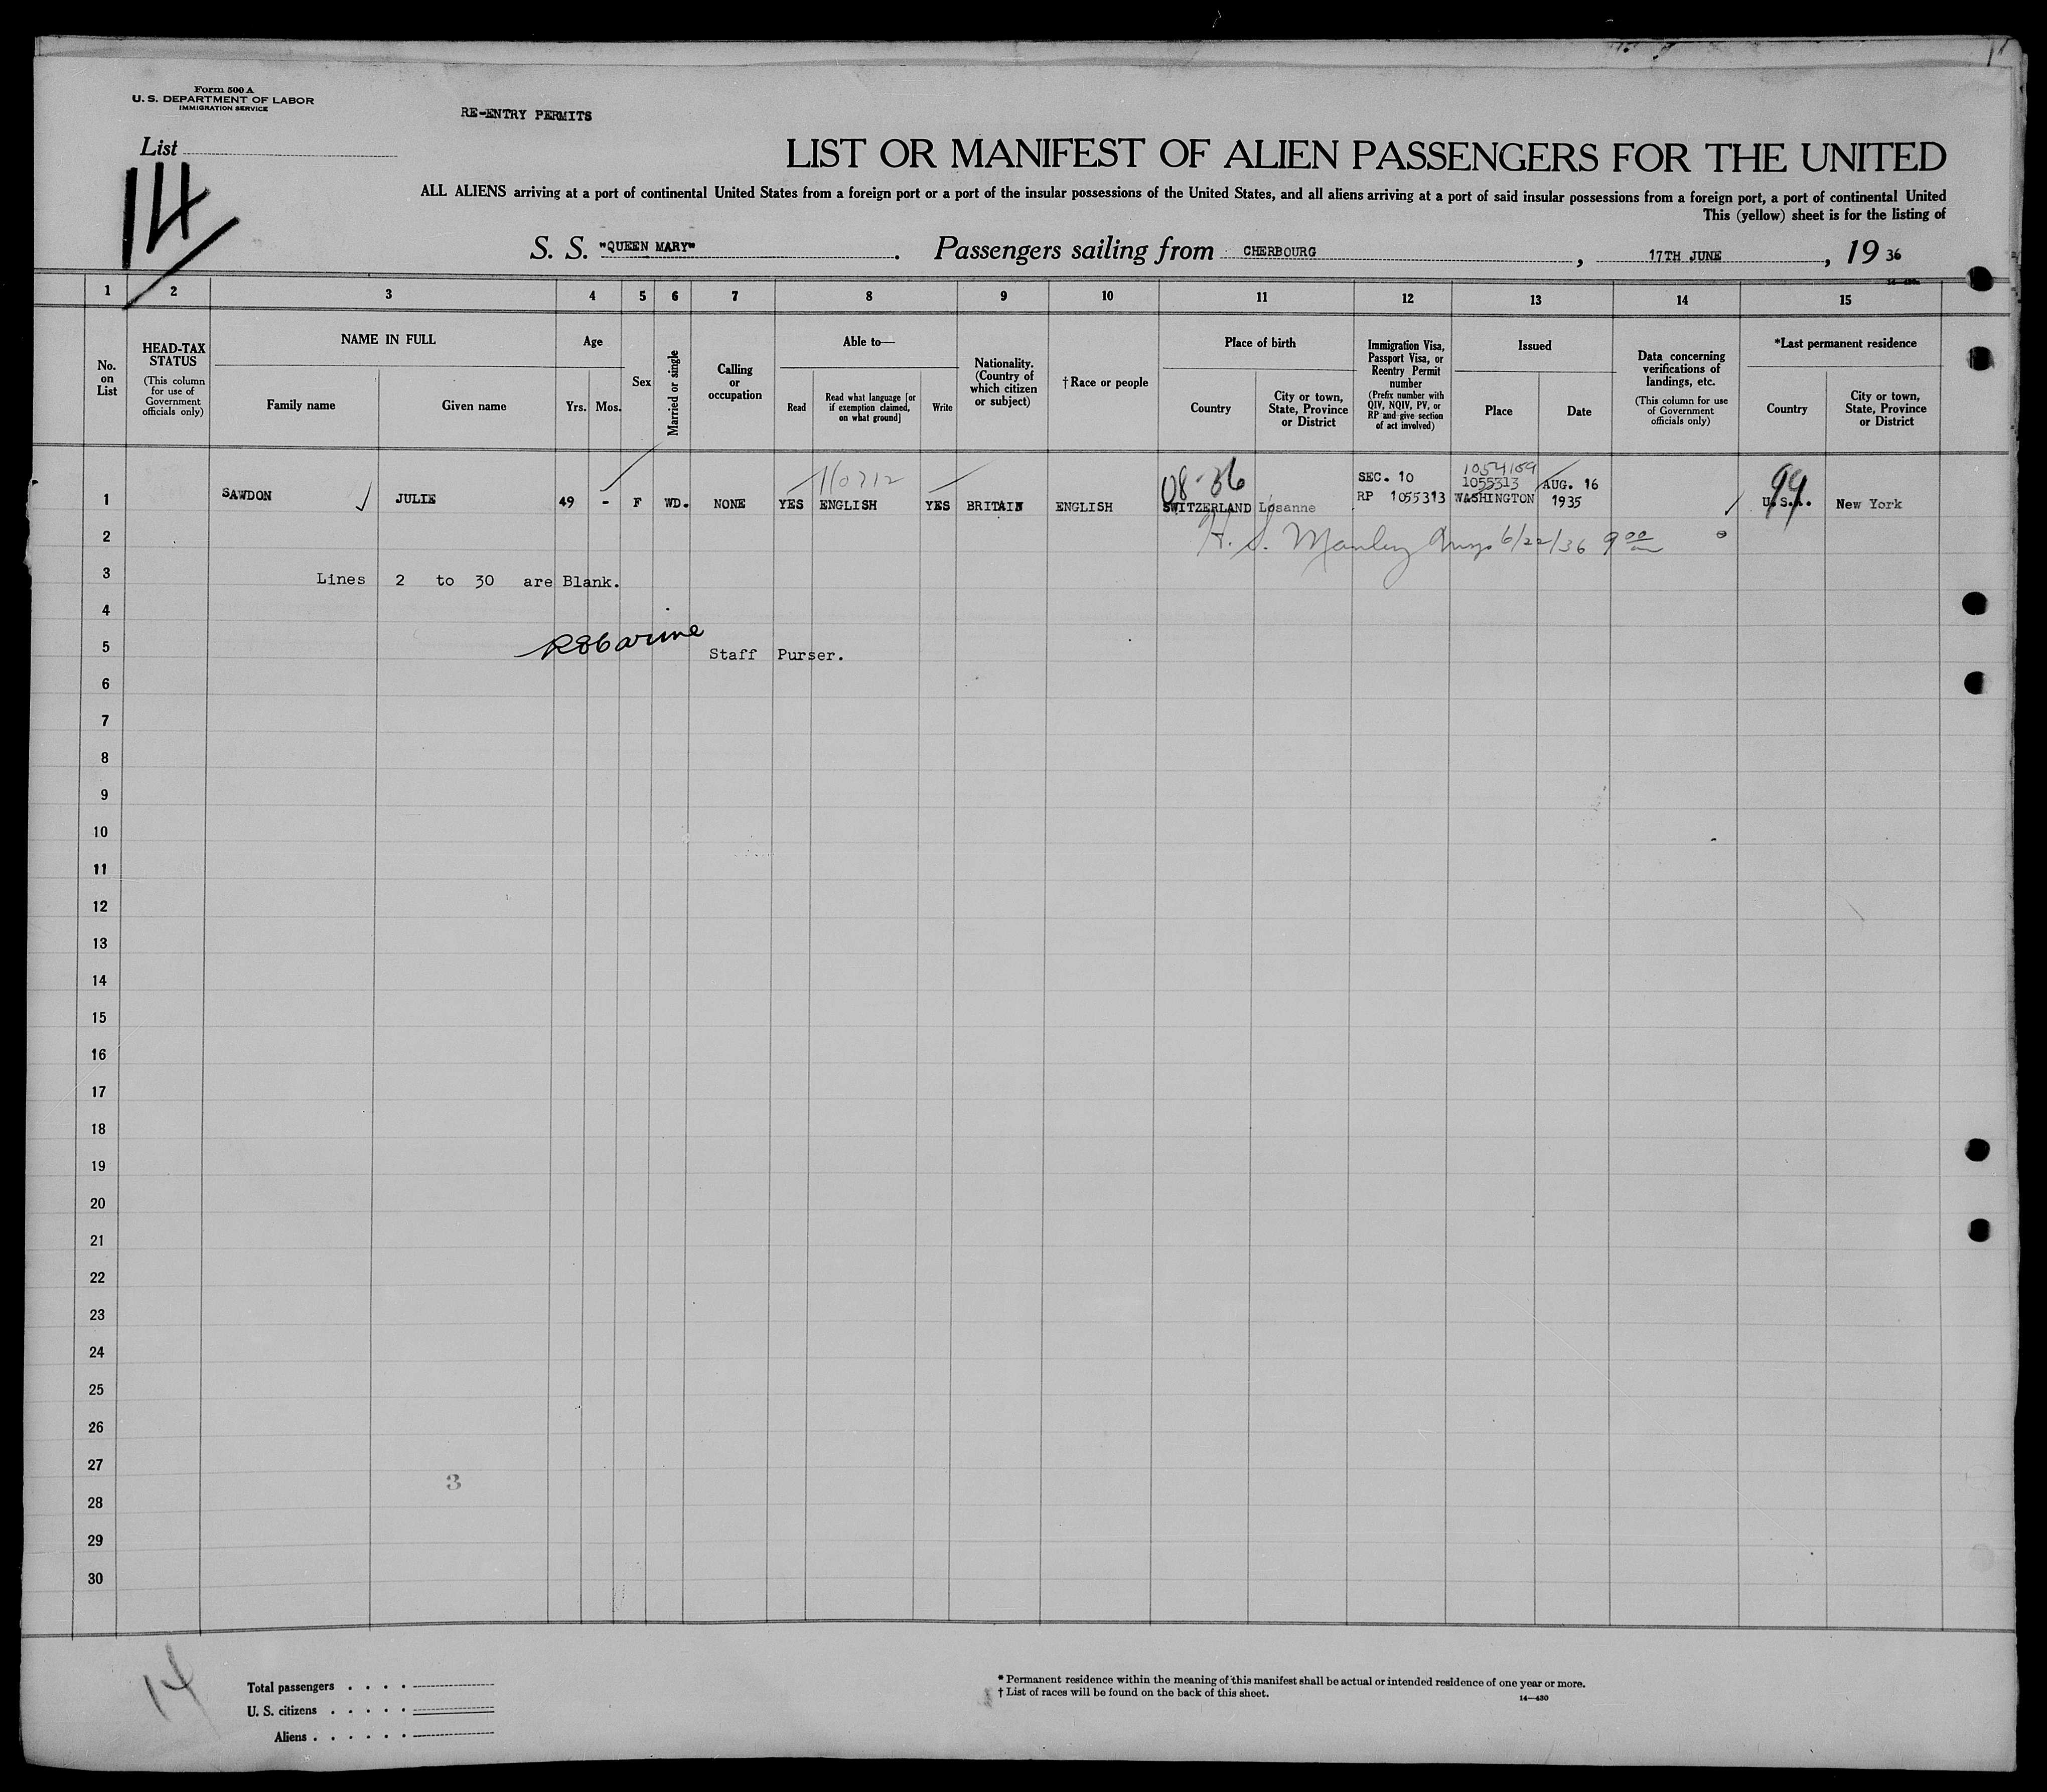 Form 500 A
U. S. DEPARTMENT OF LABOR
IMMIGRATION SERVICE
RE-ENTRY PERMITS
List
14
LIST OR MANIFEST OF ALIEN PASSENGERS FOR THE UNITED
ALL ALIENS arriving at a port of continental United States from a foreign port or a port of the insular possessions of the United States, and all aliens arriving at a port of said insular possessions from a foreign port, a port of continental United
This (yellow) sheet is for the listing of
S. S. "QUEEN MARY". Passengers sailing from CHERBOURG, 17TH JUNE, 19 36
14—430a
1 2 3 4 5 6 7 8 9 10 11 12 13 14 15
No. on List
HEAD-TAX STATUS
(This column for use of Government officials only)
NAME IN FULL
Family name
Given name
Age
Yrs. Mos.
Sex
Married or single
Calling or occupation
Able to—
Read
Read what language [or if exemption claimed, on what ground]
Write
Nationality. (Country of which citizen or subject)
†Race or people
Place of birth
Country
City or town, State, Province or District
Immigration Visa, Passport Visa, or Reentry Permit number
(Prefix number with QIV, NQIV, PV, or RP and give section of act involved)
Issued
Place
Date
Data concerning verifications of landings, etc.
(This column for use of Government officials only)
*Last permanent residence
Country
City or town, State, Province or District
110712
08-36
SEC. 10
1054159
1055313
AUG. 16
99
1 SAWDON JULIE 49 - F WD. NONE YES ENGLISH YES BRITAIN ENGLISH SWITZERLAND Losanne RP 1055313 WASHINGTON 1935 U.S.A. New York
2
H. S. Manley 6/22/36 9 00 am
3
Lines 2 to 30 are Blank.
4
5
Staff Purser.
6
7
8
9
10
11
12
13
14
15
16
17
18
19
20
21
22
23
24
25
26
27
3
28
29
30
14
Total passengers . . . .
U. S. citizens . . . . .
Aliens . . . . . .
* Permanent residence within the meaning of this manifest shall be actual or intended residence of one year or more.
† List of races will be found on the back of this sheet.
14—430